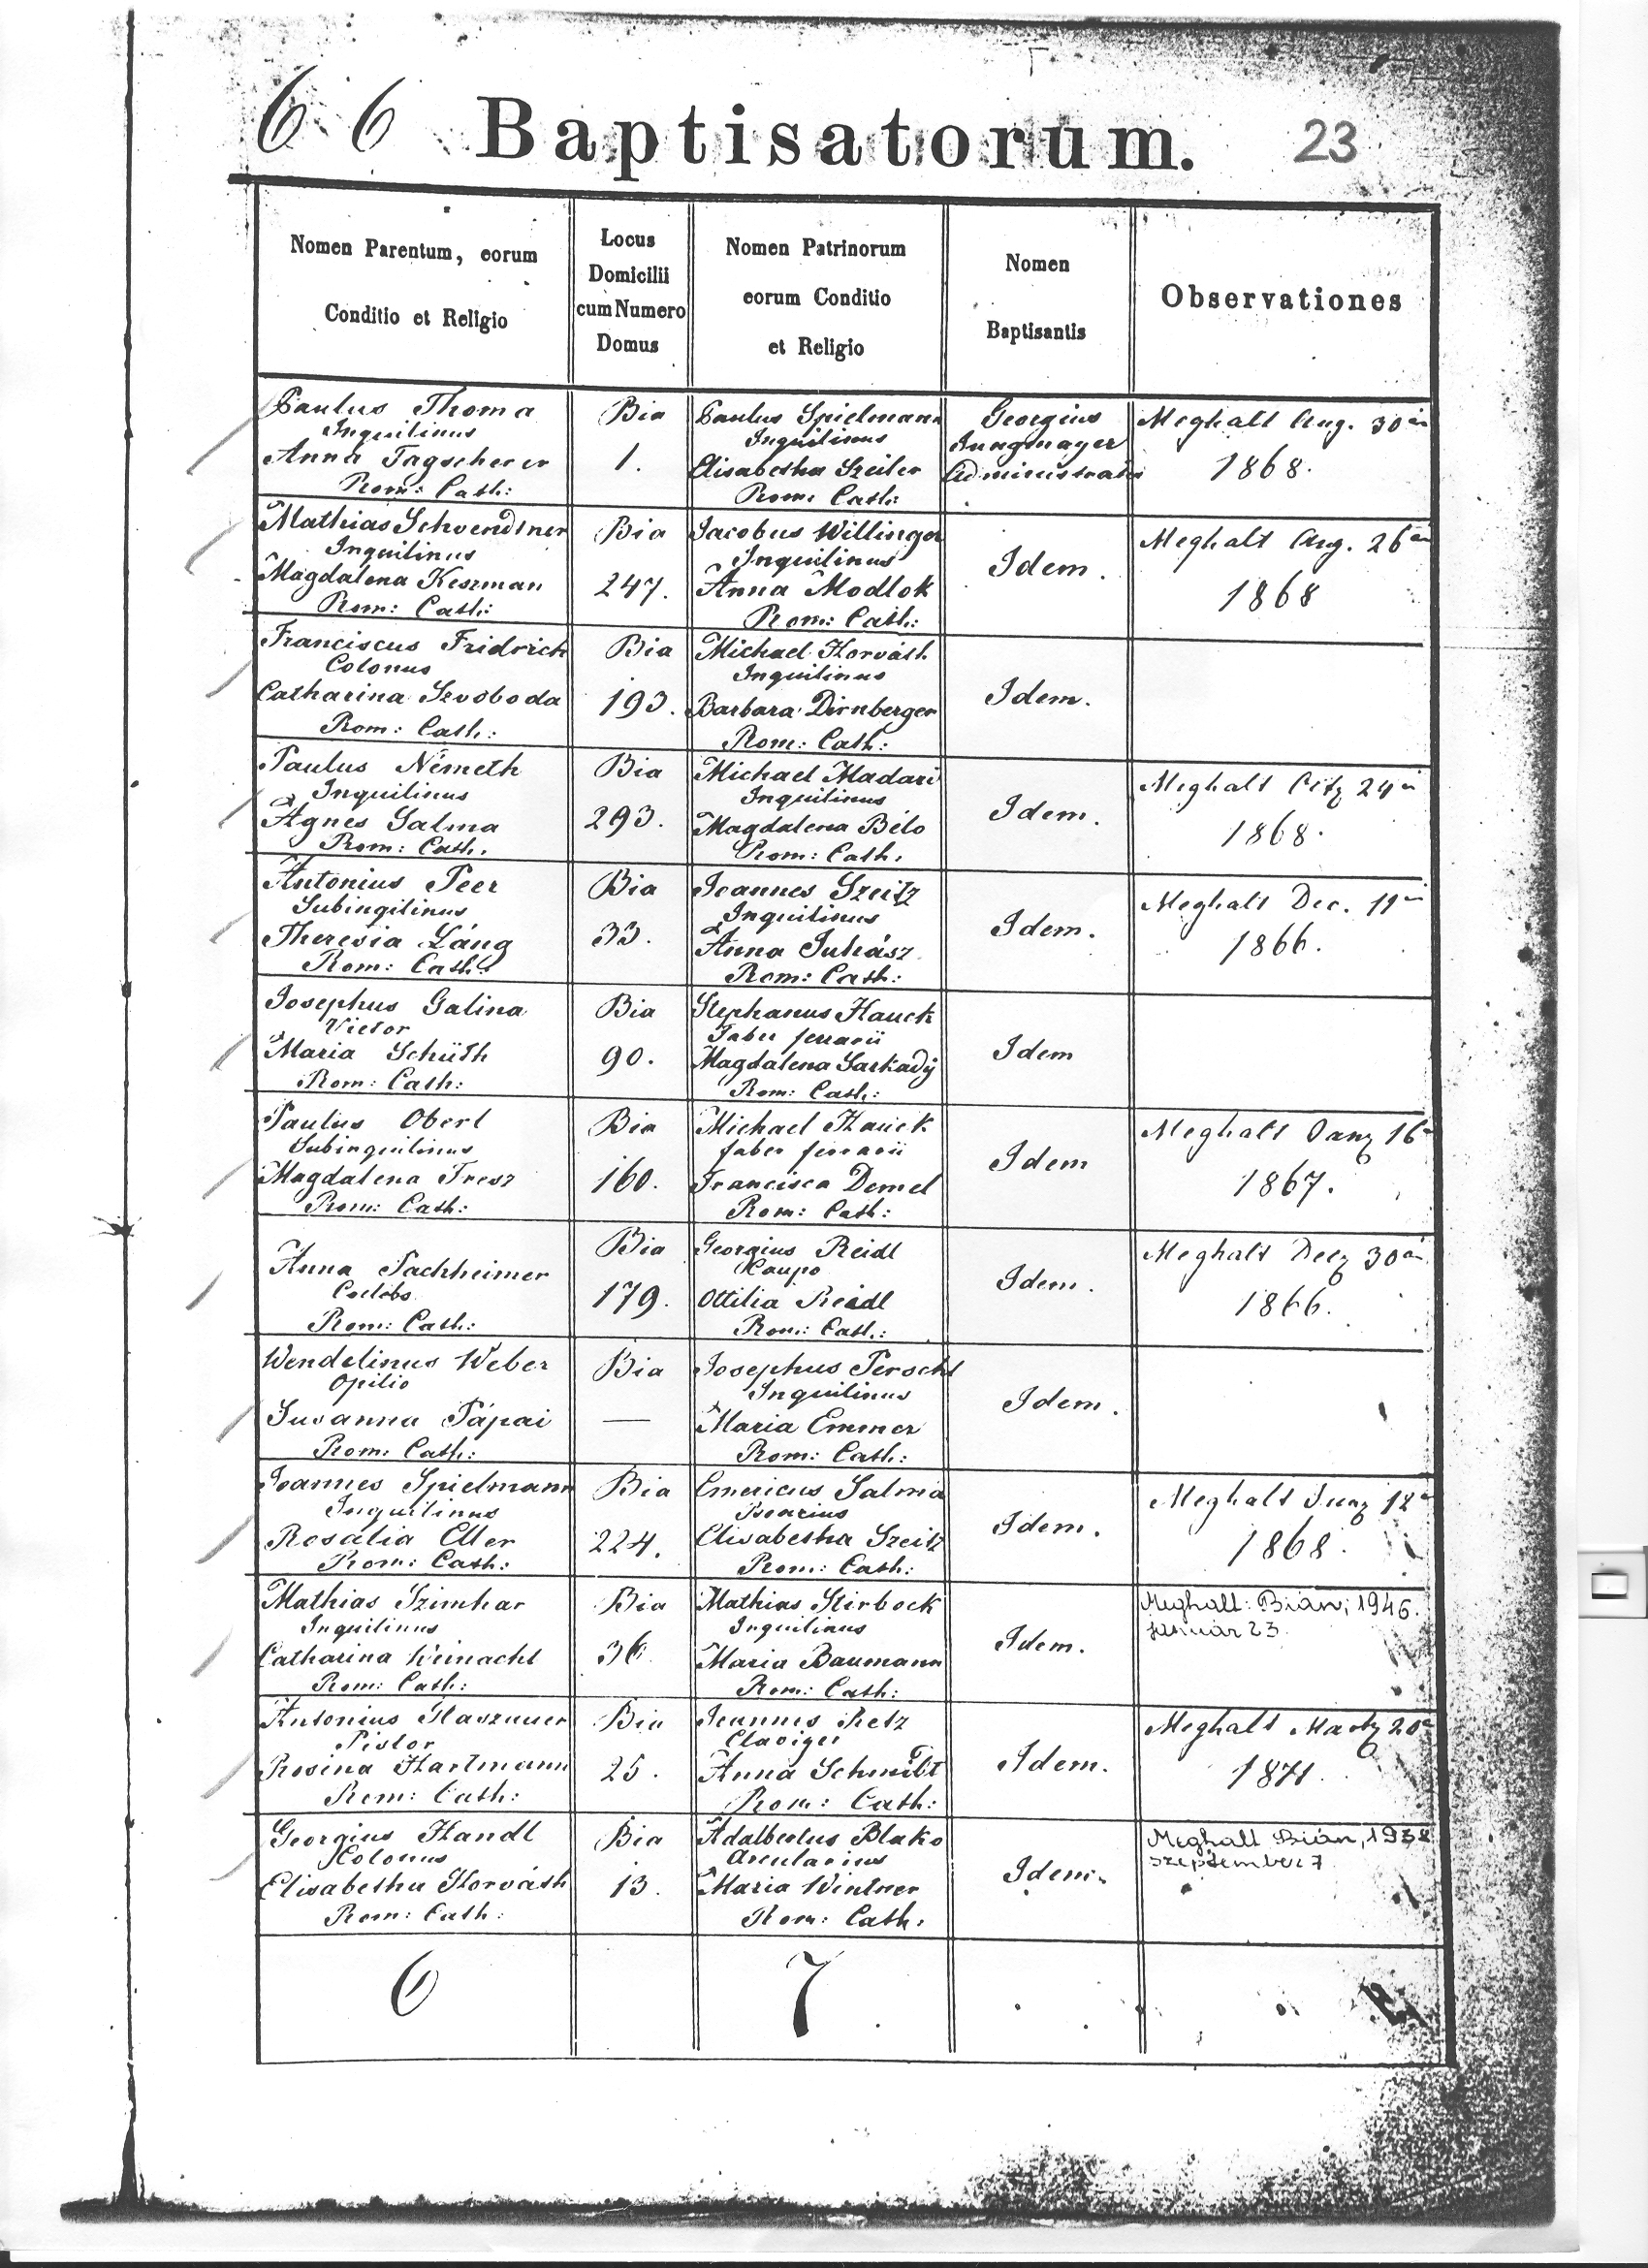 66 Baptisatorum. 23
Nomen Parentum, eorum
Conditio et Religio
Locus
Domicilii
cum Numero
Domus
Nomen Patrinorum
eorum Conditio
et Religio
Nomen
Baptisantis
Observationes
Paulus Thoma
Inquilinus
Anna Tagscherer
Rom: Cath:
Bia
1.
Paulus Spielmann
Inquilinus
Elisabetha Szeiler
Rom: Cath:
Georgius
Jungmayer
Administrator
Meghalt Aug. 30án
1868.
Mathias Schvendtner
Inquilinus
Magdalena Keszman
Rom: Cath:
Bia
247.
Jacobus Willinger
Inquilinus
Anna Modlok
Rom: Cath:
Idem.
Meghalt Aug. 26án
1868
Franciscus Fridrich
Colonus
Catharina Szvoboda
Rom: Cath:
Bia
193.
Michael Horváth
Inquilinus
Barbara Dirnberger
Rom: Cath:
Idem.
Paulus Németh
Inquilinus
Agnes Salma
Rom: Cath.
Bia
293.
Michael Madari
Inquilinus
Magdalena Bélo
Rom: Cath.
Idem.
Meghalt 24
1868.
Antonius Peer
Subinqilinus
Theresia Láng
Rom: Cath:
Bia
33.
Joannes Szeitz
Inquilinus
Anna Juhász
Rom: Cath:
Idem.
Meghalt Dec. 11
1866.
Josephus Galina
Vietor
Maria Schüth
Rom: Cath:
Bia
90.
Stephanus Hauck
Faber ferrarii
Magdalena Sarkady
Rom: Cath:
Idem
Paulus Oberl
Subinquilinus
Magdalena Tresz
Rom: Cath:
Bia
160.
Michael Hauck
faber ferrarii
Francisca Demel
Rom: Cath:
Idem
Meghalt 16
1867.
Anna Pachheimer
Coelebs
Rom: Cath:
Bia
179.
Georgius Reidl
Caupo
Ottilia Reidl
Rom: Cath:
Idem.
Meghalt Decz 30án
1866.
Wendelinus Weber
Opilio
Susanna Pápai
Rom: Cath:
Bia
—
Josephus Perschl
Inquilinus
Maria Emmer
Rom: Cath:
Idem.
Joannes Spielmann
Inquilinus
Rosalia Eller
Rom: Cath:
Bia
224.
Emericus Salma
Elisabetha Szeitz
Rom: Cath:
Idem.
Meghalt 12
1868.
Mathias Szimhar
Inquilinus
Catharina Weinachl
Rom: Cath:
Bia
36
Mathias Stirbock
Inquilinus
Maria Baumann
Rom: Cath:
Idem.
Meghalt: Bián, 1946.
január 23.
Antonius Haszauer
Pistor
Rosina Hartmann
Rom: Cath:
Bia
25.
Joannes Retz
Claviger
Anna Schmidt
Rom: Cath:
Idem.
Meghalt 20
1871.
Georgius Handl
Colonus
Elisabetha Horváth
Rom: Cath:
Bia
13.
Adalbertus Blako
Arcularius
Maria Wintner
Rom: Cath.
Idem.
Meghalt Bián,
szeptember 7.
6 7